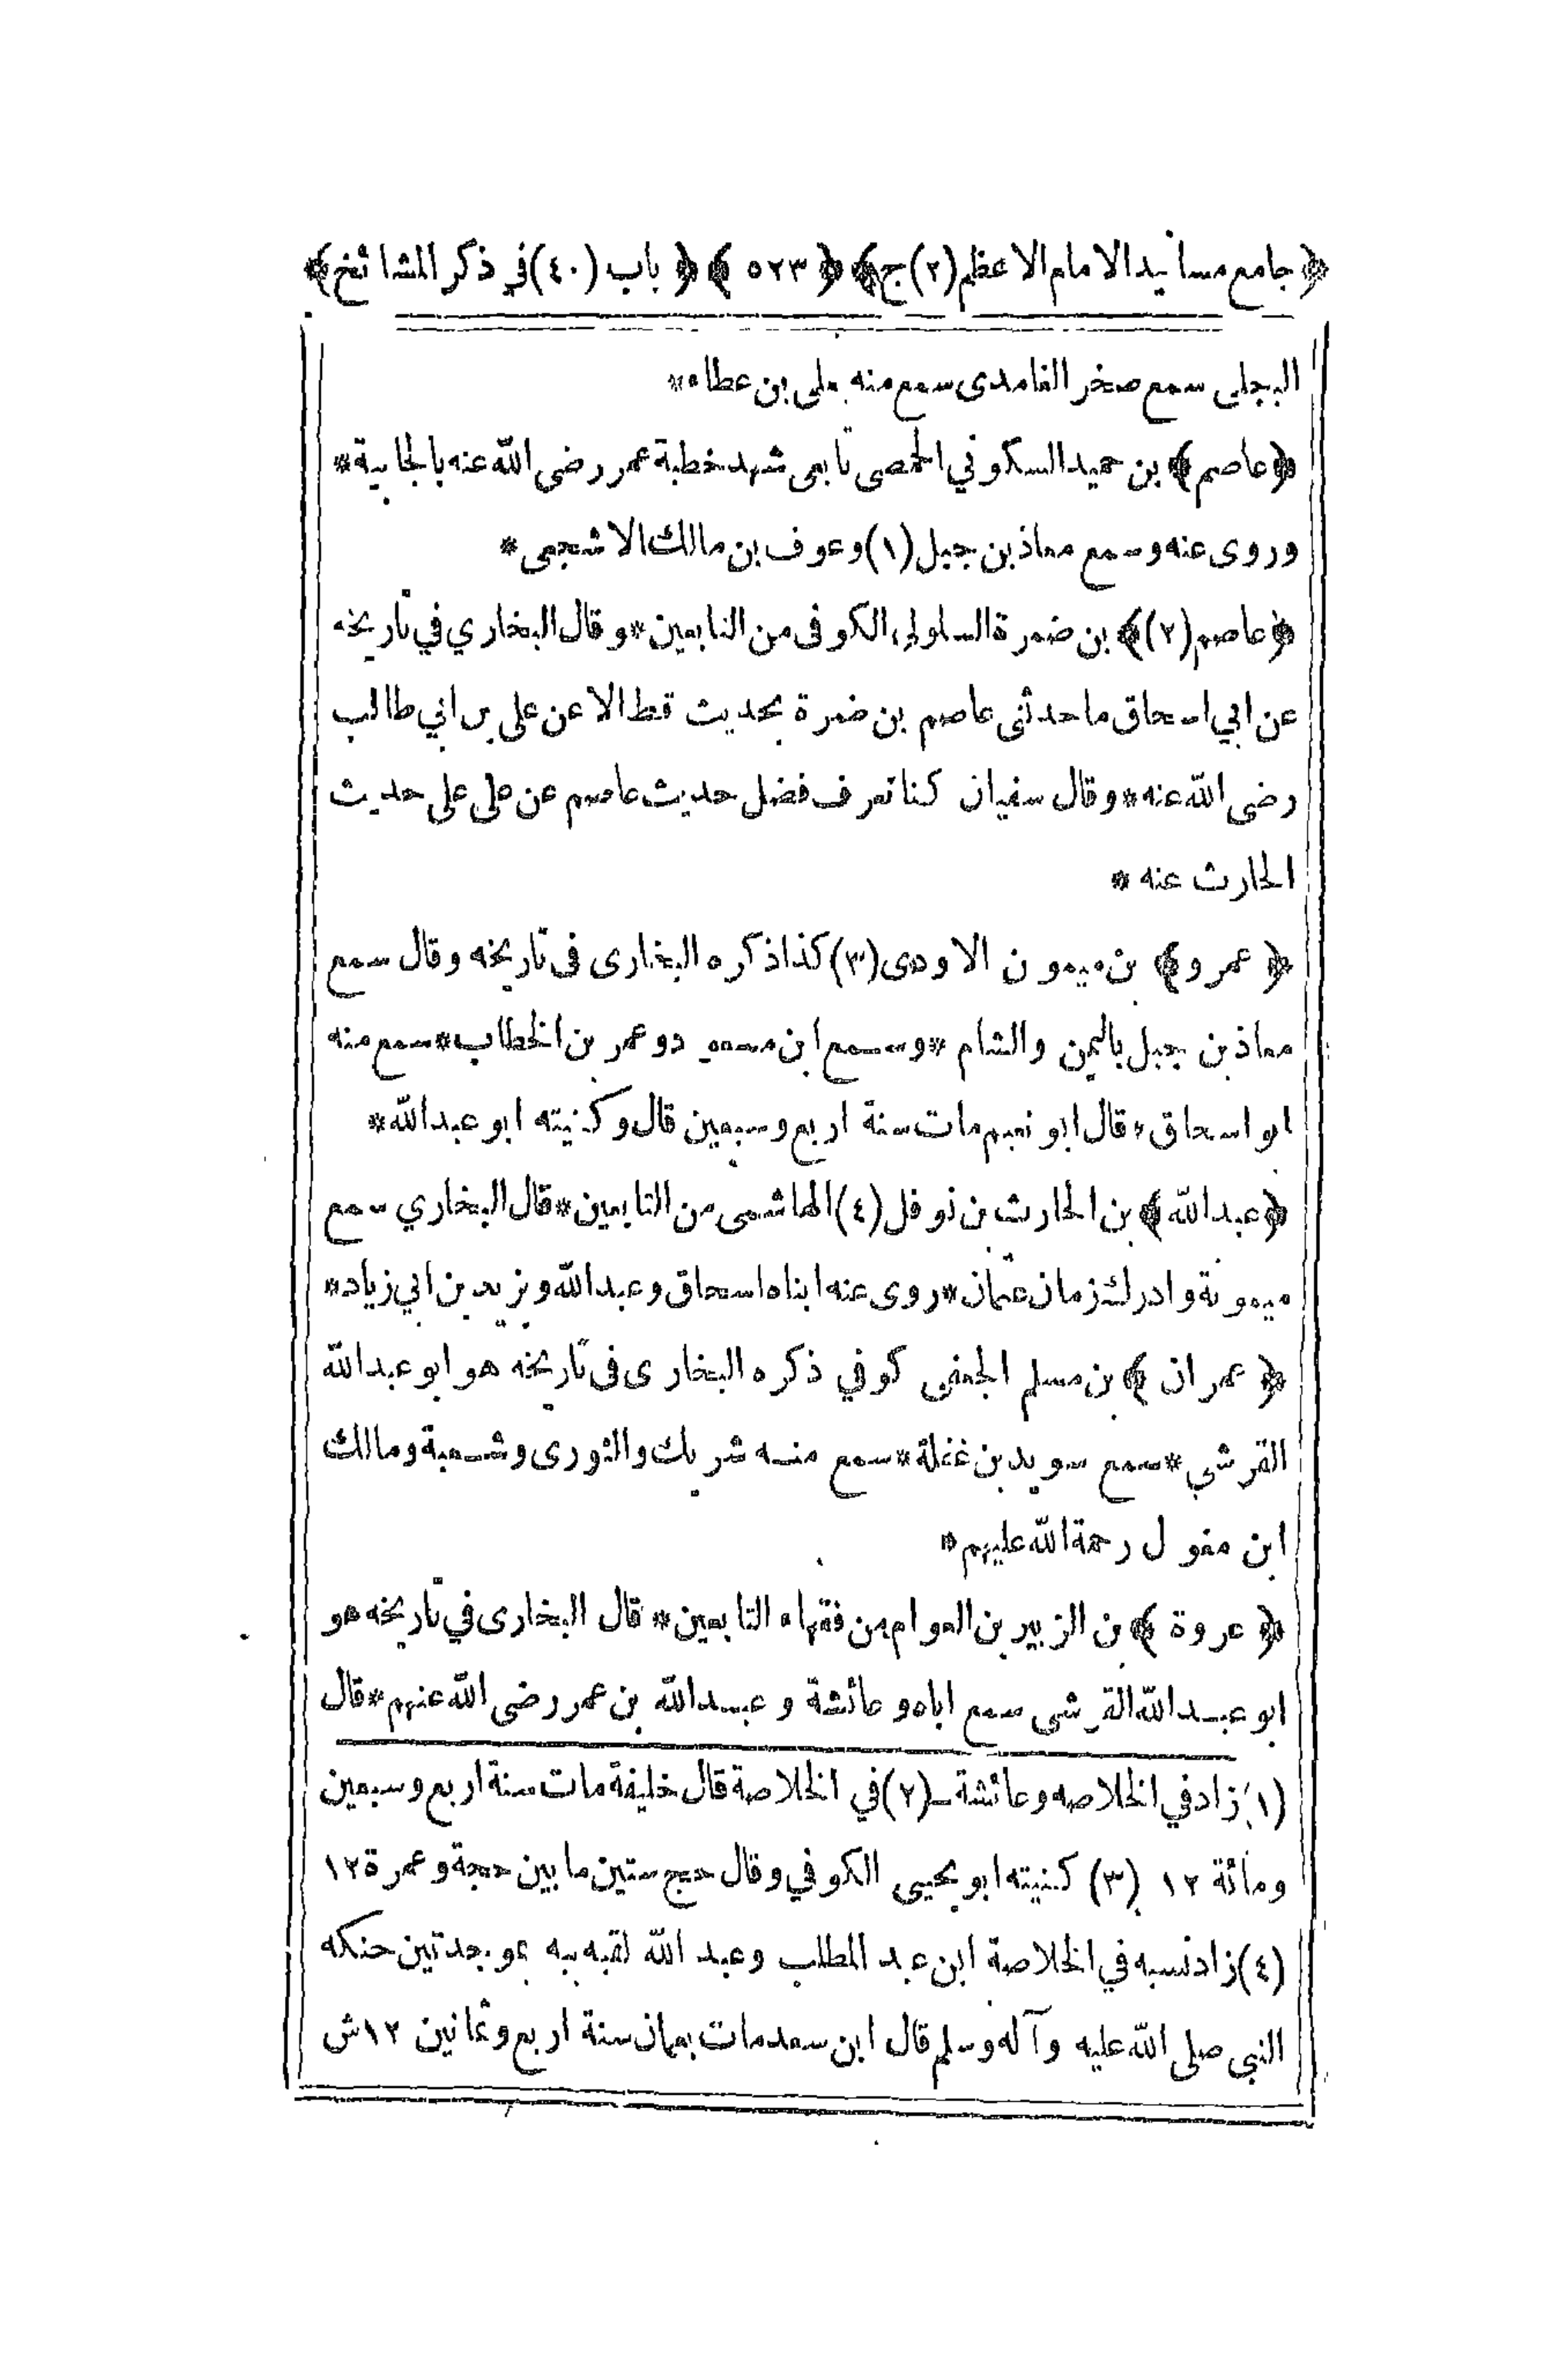 ﴿جامع مسانيد الامام الاعظم (٢) ج﴾ ﴿٥٢٣﴾ ﴿باب (٤٠) في ذكر المشائخ﴾
البجلي سمع صخر الغامدى سمع منه يعلى بن عطاء *
﴿عاصم﴾ بن حميد السكوني الحمصى تابعى شهد خطبة عمر رضى الله عنه بالجابية *
وروى عنه وسمع معاذ بن جبل (١) وعوف بن مالك الاشجعى *
﴿عاصم (٢)﴾ بن ضمرة السلولى الكوفى من التابعين * وقال البخاري في تاريخه
عن ابي اسحاق ما حدثنى عاصم بن ضمرة بحديث قط الا عن على بن ابي طالب
رضى الله عنه * وقال سفيان كنا نعرف فضل حديث عاصم عن على على حديث
الحارث عنه *
﴿عمرو﴾ بن ميمون الاودى (٣) كذا ذكره البخارى فى تاريخه وقال سمع
معاذ بن جبل باليمن والشام * وسمع ابن مسعود وعمر بن الخطاب * سمع منه
ابو اسحاق * قال ابو نعيم مات سنة اربع وسبعين قال وكنيته ابو عبد الله *
﴿عبد الله﴾ بن الحارث بن نوفل (٤) الهاشمى من التابعين * قال البخاري سمع
ميمونة وادرك زمان عثمان * روى عنه ابناه اسحاق وعبد الله ويزيد بن ابي زياد *
﴿عمران﴾ بن مسلم الجعفى كوفي ذكره البخارى فى تاريخه هو ابو عبد الله
القرشي * سمع سويد بن غفلة * سمع منه شريك والثورى وشعبة ومالك
ابن مغول رحمة الله عليهم *
﴿عروة﴾ بن الزبير بن العوام من فقهاء التابعين * قال البخارى في تاريخه هو
ابو عبد الله القرشى سمع اباه وعائشة وعبد الله بن عمر رضى الله عنهم * قال
(١) زاد في الخلاصه وعائشة ـ (٢) في الخلاصة قال خليفة مات سنة اربع وسبعين
ومائة ١٢ (٣) كنيته ابو يحيى الكوفي وقال حج ستين ما بين حجة وعمرة ١٢
(٤) زاد نسبه في الخلاصة ابن عبد المطلب وعبد الله لقبه ببه بموحدتين حنكه
النبى صلى الله عليه وآله وسلم قال ابن سعد مات بعمان سنة اربع وثمانين ١٢ ش